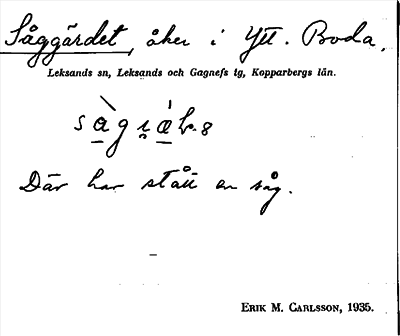 Såggärdet, åker i Ytt. Boda.
Leksands sn, Leksands och Gagnefs tg, Kopparbergs län.
Där har stått en såg.
ERIK M. CARLSSON, 1935.